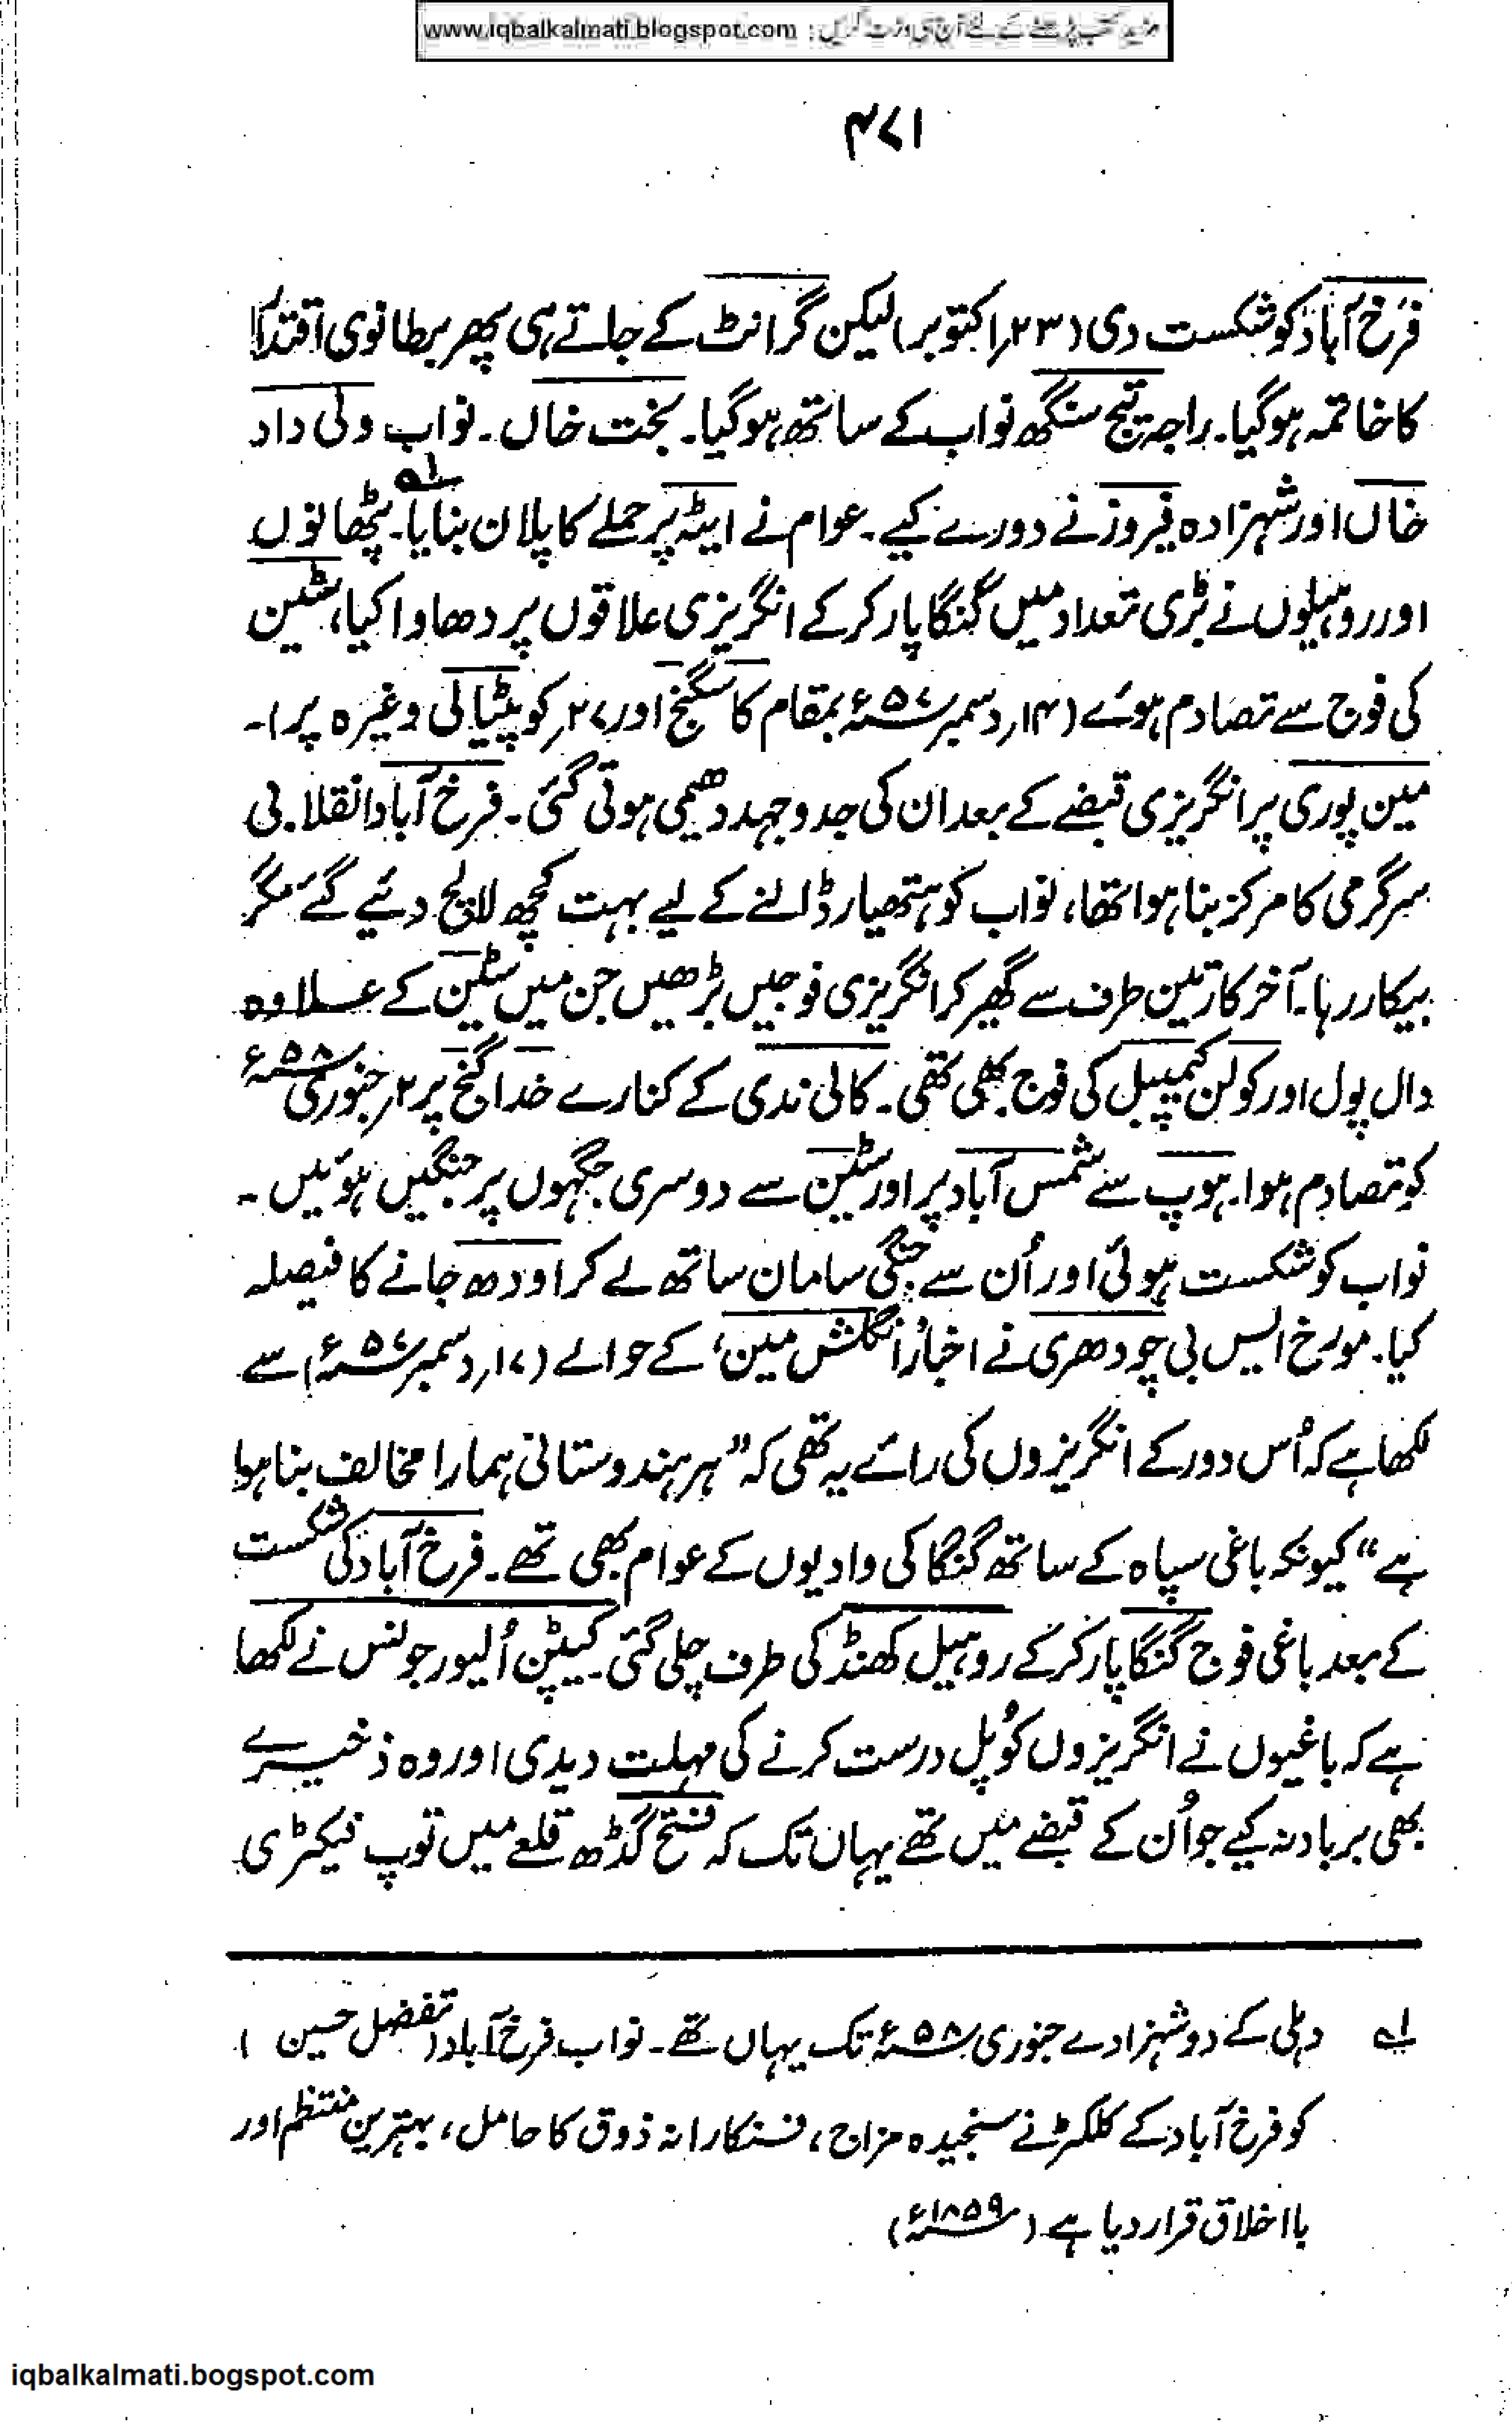 مزید کتب پڑھنے کے لئے آج ہی وزٹ کریں : www.iqbalkalmati.blogspot.com
۴۷۱
فرخ آباد کو شکست دی (۲۳؍اکتوبر) لیکن گرانٹ کے جاتے ہی پھر برطانوی اقتدار
کا خاتمہ ہوگیا۔ راجہ تیج سنگھ نواب کے ساتھ ہوگیا۔ بخت خاں۔ نواب ولی داد
خاں اور شہزادہ فیروز نے دورے کیے۔ عوام نے ایٹہ پر حملے کا پلان بنایا۔ ۱ پٹھانوں
اور روہیلوں نے بڑی تعداد میں گنگا پار کرکے انگریزی علاقوں پر دھاوا کیا، سٹین
کی فوج سے تصادم ہوئے (۱۴؍دسمبر ۵۷ء بمقام کاسگنج اور ۲۷؍کو پٹیالی وغیرہ پر)۔
مین پوری پر انگریزی قبضے کے بعد ان کی جدوجہد دھیمی ہوتی گئی۔ فرخ آباد انقلابی
سرگرمی کا مرکز بنا ہوا تھا، نواب کو ہتھیار ڈالنے کے لیے بہت کچھ لالچ دئیے گئے مگر
بیکار رہا۔ آخرکار تین طرف سے گھیر کر انگریزی فوجیں بڑھیں جن میں سٹین کے علاوہ
وال پول اور کولن کیمپبل کی فوج بھی تھی۔ کالی ندی کے کنارے خداگنج پر ۲؍جنوری ۵۸ء
کو تصادم ہوا۔ ہوپ سے شمس آباد پر اور سٹین سے دوسری جگہوں پر جنگیں ہوئیں۔
نواب کو شکست ہوئی اور اُن سے جنگی سامان ساتھ لے کر اودھ جانے کا فیصلہ
کیا۔ مورخ ایس بی چودھری نے اخبار ’انگلش مین‘ کے حوالے (۱۷؍دسمبر ۵۷ء) سے
لکھا ہے کہ اُس دور کے انگریزوں کی رائے یہ تھی کہ ”ہر ہندوستانی ہمارا مخالف بنا ہوا
ہے“ کیونکہ باغی سپاہ کے ساتھ گنگا کی وادیوں کے عوام بھی تھے۔ فرخ آباد کی شکست
کے بعد باغی فوج گنگا پار کرکے روہیل کھنڈ کی طرف چلی گئی۔ کیپٹن اُلیور جونس نے لکھا
ہے کہ باغیوں نے انگریزوں کو پُل درست کرنے کی مہلت دیدی اور وہ ذخیرے
بھی برباد نہ کیے جو اُن کے قبضے میں تھے یہاں تک کہ فتح گڈھ قلعے میں توپ فیکٹری
۱ دہلی کے دو شہزادے جنوری ۵۸ء تک یہاں تھے۔ نواب فرخ آباد (تفضل حسین)
کو فرخ آباد کے کلکٹر نے سنجیدہ مزاج، فنکارانہ ذوق کا حامل، بہترین منتظم اور
بااخلاق قرار دیا ہے (۱۸۵۹ء)
iqbalkalmati.bogspot.com